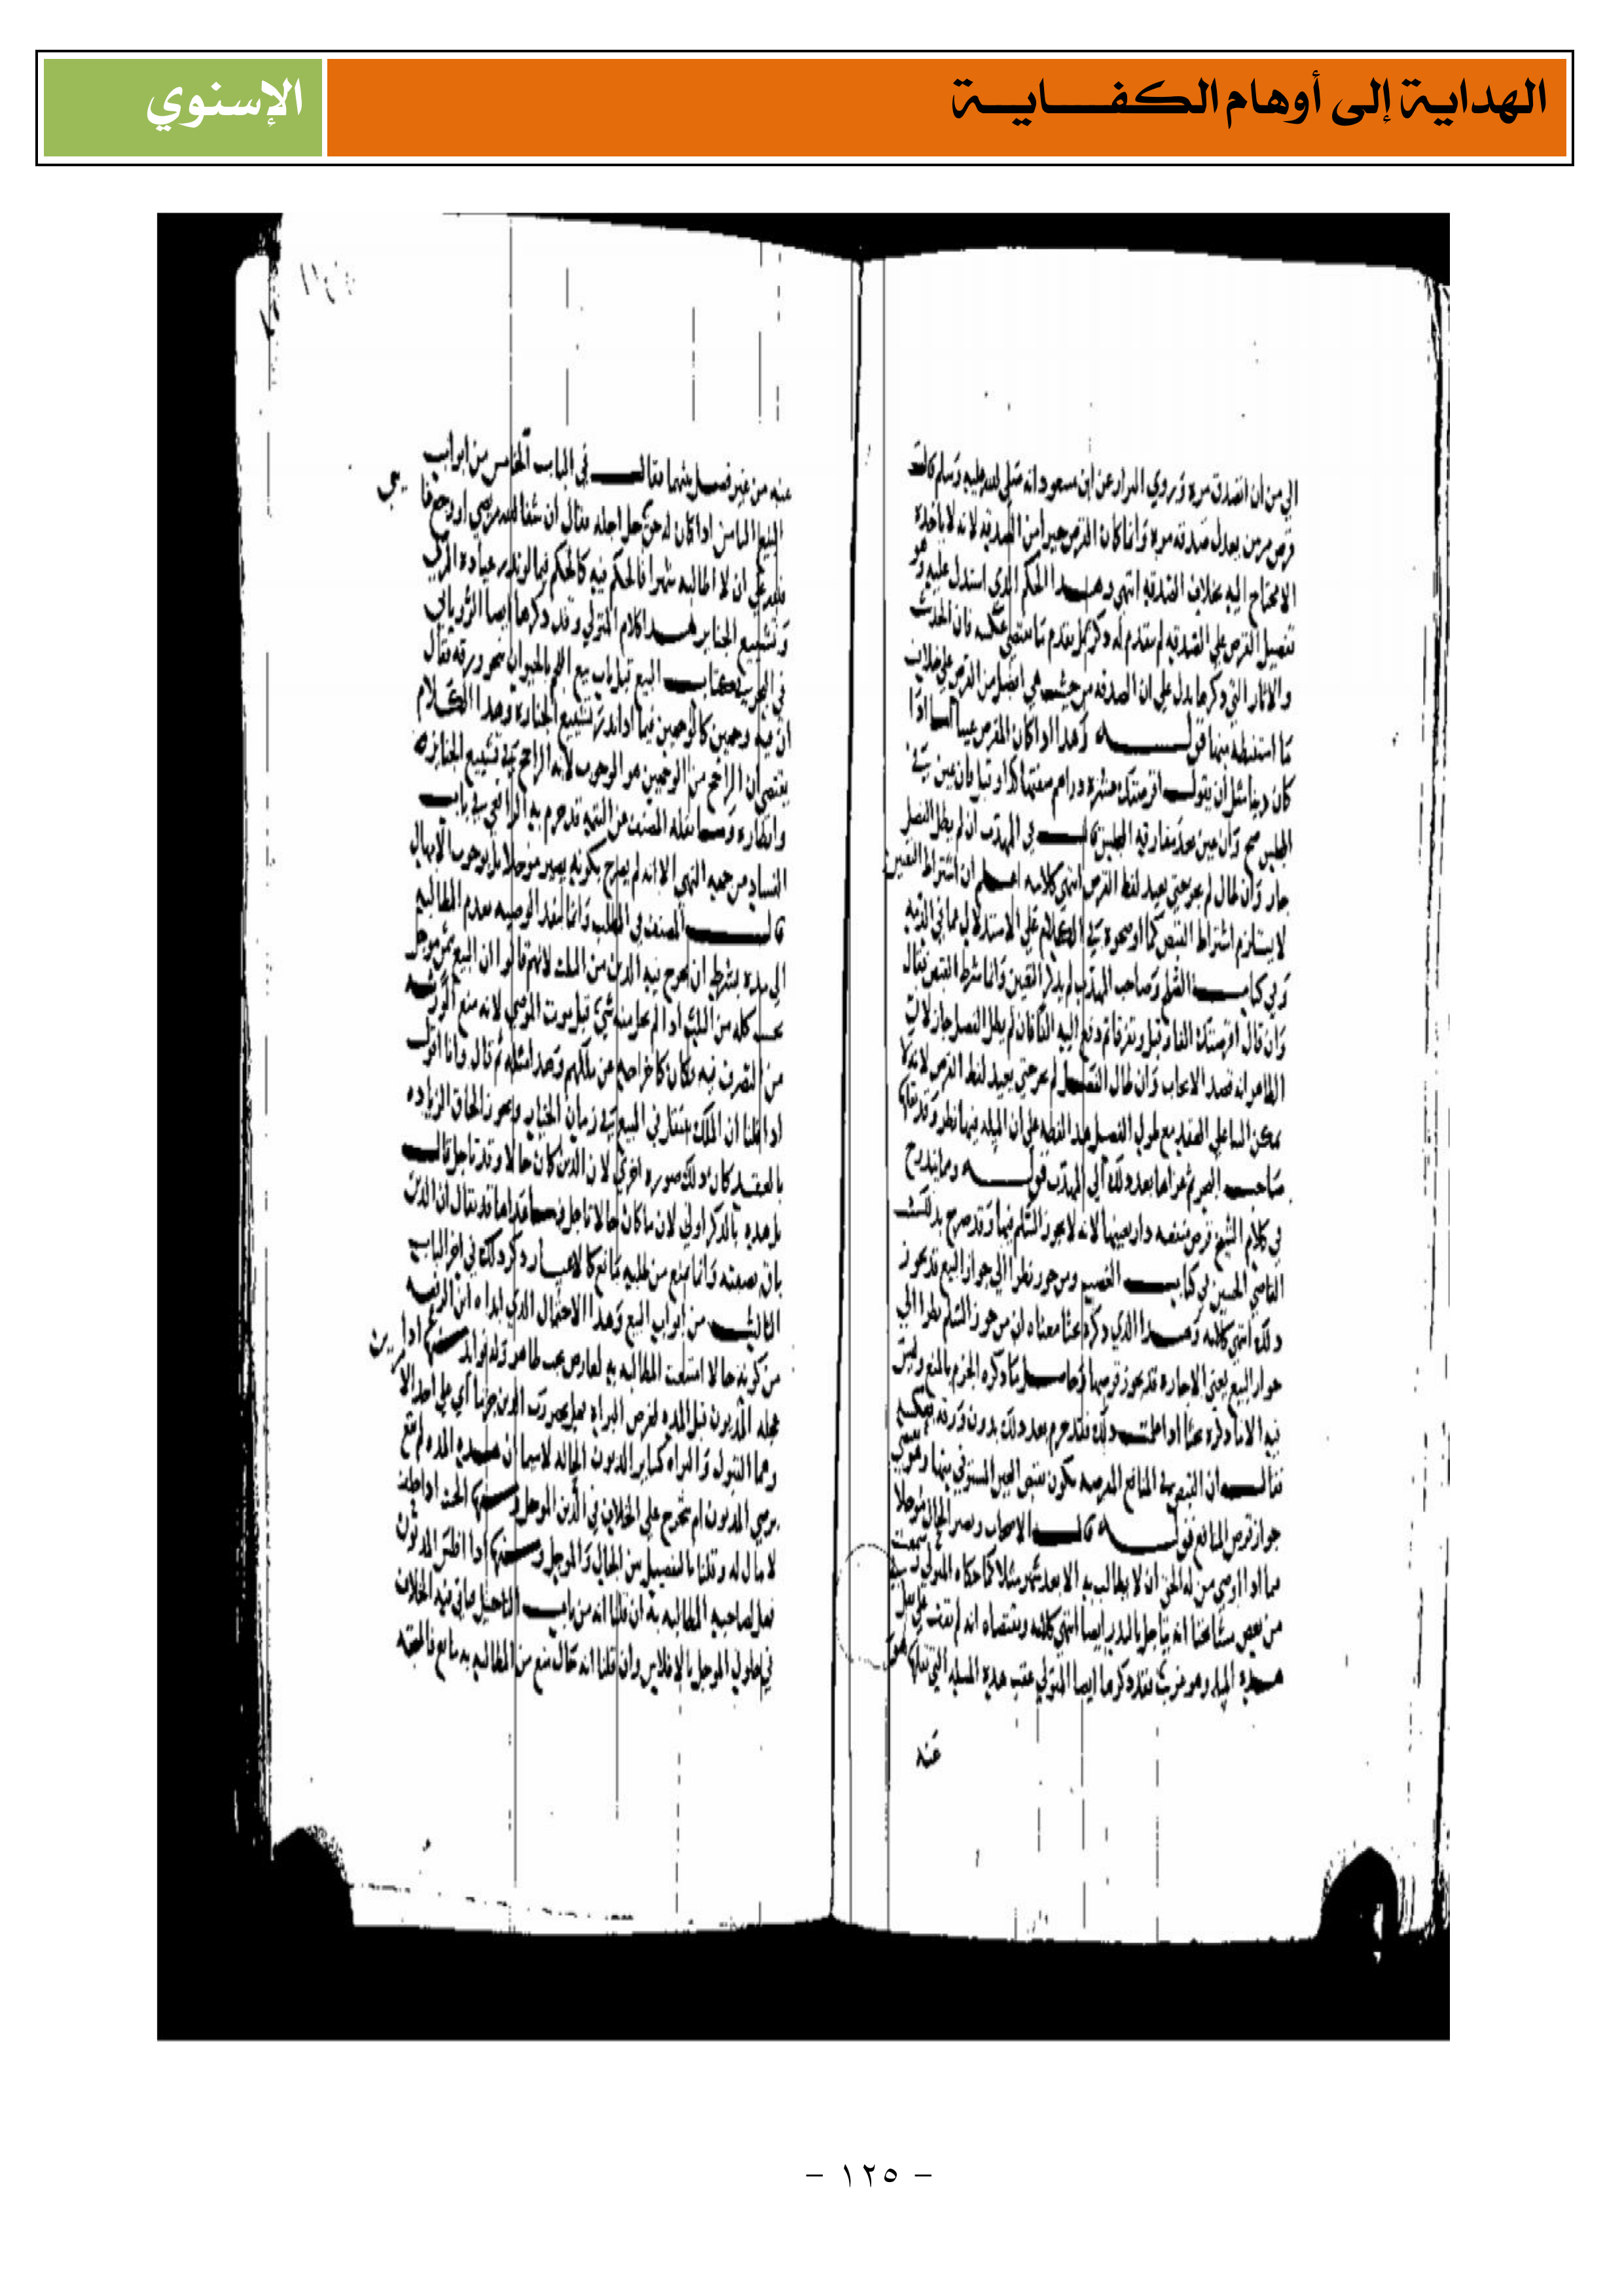 الهداية إلى أوهام الكفاية
الإسنوي
الي من ان اتصدق مره وروي البزار عن ابن مسعود انه صلي الله عليه وسلم قال
قرض مرتين يعدل صدقه مره وانما كان القرض خيرا من الصدقه لانه لا ياخذه
الا محتاج اليه بخلاف الصدقه انتهي وهذا الحكم الذي استدل عليه وهو
تفضيل القرض علي الصدقه لم يتقدم له ذكر بل تقدم ما يقتضي عكسه فان الحديث
والاثار التي ذكرها يدل علي ان الصدقه من حيث هي افضل من القرض علي خلاف
ما استنبطه منها قوله وهذا اذا كان القرض عينا اما اذا
كان دينا مثل ان يقول اقرضتك عشره دراهم صفتها كذا وقبل فان عين في
المجلس صح وان عين بعد مفارقه المجلس قال في المهذب ان لم يطل الفصل
جاز وان طال لم يجز حتي يعيد لفظ القرض انتهي كلامه اعلم ان اشتراط التعيين
لا يستلزم اشتراط القبض كما اوضحوه في الكلام علي الاستبدال عما في الذمه
وفي كتاب السلم وصاحب المهذب لم يذكر التعيين وانما شرط القبض فقال
وان قال اقرضتك الفا وقبل وتفرقا ثم دفع اليه الفا فان لم يطل الفصل جاز لان
الظاهر انه قصد الايجاب وان طال الفصل لم يجز حتي يعيد لفظ القرض لانه لا
يمكن البنا علي العقد مع طول الفصل هذا لفظه علي ان المسله فيها نظر وقد نقلها
صاحب البحر ثم عزاها بعد ذلك الي المهذب قوله ومما يندرج
في كلام الشيخ قرض منفعه دار بعينها لانه لا يجوز السلم فيها وقد صرح بذلك
القاضي الحسين في كتاب الغصب ومن جوز نظرا الي جواز البيع قد يجوز
ذلك انتهي كلامه وهذا الذي ذكره بحثا معناه ان من جوز السلم نظرا الي
جواز البيع يعني الاجاره قد يجوز قرضها وحاصل ما ذكره الجزم بالمنع وليس
فيه الا ما ذكره بحثا اذا علمت ذلك فقد جزم بعد ذلك بدون ورقه بعكسه
فقال ان القبض في المنافع المقرضه يكون بقبض العين المستوفي منها وهو يقتضي
جواز قرض المنافع قوله قال الاصحاب ويصير الحال موجلا
فيما اذا اوصي من له الحق ان لا يطالب به الا بعد شهر مثلا كما حكاه المتولي وسمعت
من بعض مشايخنا انه يتاجل بالنذر ايضا انتهي كلامه ومقتضاه انه لم يقف علي نقل
هذه المسله وهو غريب فقد ذكرها ايضا المتولي عقب هذه المسله التي نقلها هو
عنه
عنه من غير فصل بينهما فقال في الباب الخامس من ابواب
البيع الثامن اذا كان له حق حل اجله فقال ان شفا الله مريضي او رجع غا
يبي فلله علي ان لا اطالبه شهرا فالحكم فيه كالحكم فيما لو نذر عياده المرضي
وتشييع الجنايز هذا كلام المتولي وقد ذكرها ايضا الروياني
في البحر في كتاب البيع قبل باب بيع اللحم بالحيوان بنحو ورقه فقال
ان فيه وجهين كالوجهين فيما اذا نذر تشييع الجنازه وهذا الكلام
يقتضي ان الراجح من الوجهين هو الوجوب لانه الراجح في تشييع الجنازه
وانظاره وما نقله المصنف عن التتمه قد جزم به الرافعي في باب
الفساد من جهه النهي الا انه لم يصرح بكونه يصير موجلا بل بوجوب الامهال
قال المصنف في المطلب وانما تنفذ الوصيه بعدم المطالبه
الي مده بشرط ان يخرج فيه الدين من الثلث لانهم قالوا ان البيع بثمن موجل
يحسب كله من الثلث اذا لم يحل منه شي قبل موت الموصي لانه منع الورثه
من التصرف فيه فكان كاخراجه عن ملكهم وهذا مثله ثم قال وانا اقول
اذا قلنا ان الملك ينتقل في البيع في زمان الخيار ويجوز الحاق الزياده
بالعقد كان ذلك صوره اخري لان الدين كان حالا وقد تاجل قال
بل هذه بالذكر اولي لان ما كان حالا تاجل وما عداها قد يقال ان الدين
باق بصفته وانما يمنع من طلبه مانع كالاعسار ذكر ذلك في اخر الباب
الثالث من ابواب البيع وهذا الاحتمال الذي ابداه ابن الرفعه
من كونه حالا امتنعت المطالبه به لعارض بحث ظاهر وله فوايد منها اذا
عجله المديون قبل المده لغرض البراه هل يجبر رب الدين جزما اي علي احد الامرين
وهما القبول والابراه كساير الديون الحاله لا سيما ان هذه المده لم تقع
برضي المديون ام يتخرج علي الخلاف في الدين الموجل ومنها الحنث اذا حلف
لا مال له وقلنا بالتفصيل بين الحال والموجل ومنها اذا افلس المديون
فهل لصاحبه المطالبه به ان قلنا انه من باب التاجيل فياتي فيه الخلاف
في حلول الموجل بالافلاس وان قلنا انه حال منع من المطالبه به مانع فالمتجه
- ١٢٥ -